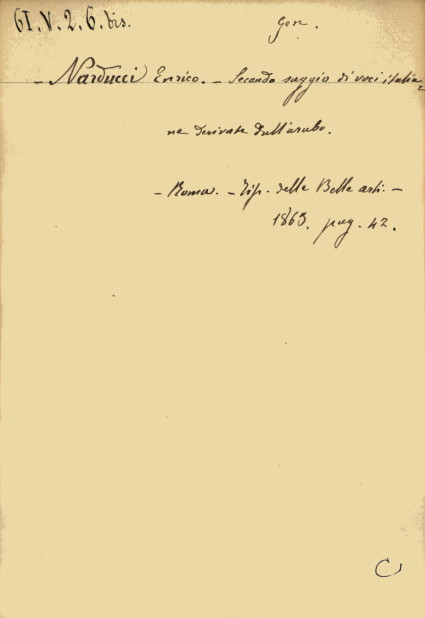 61.V.2.6.bis.
Gen.
- Narducci Enrico. - Secondo saggio di voci italia=
ne derivate dall'arabo.
- Roma. - Tip. delle Belle arti. -
1863. pag. 42.
C